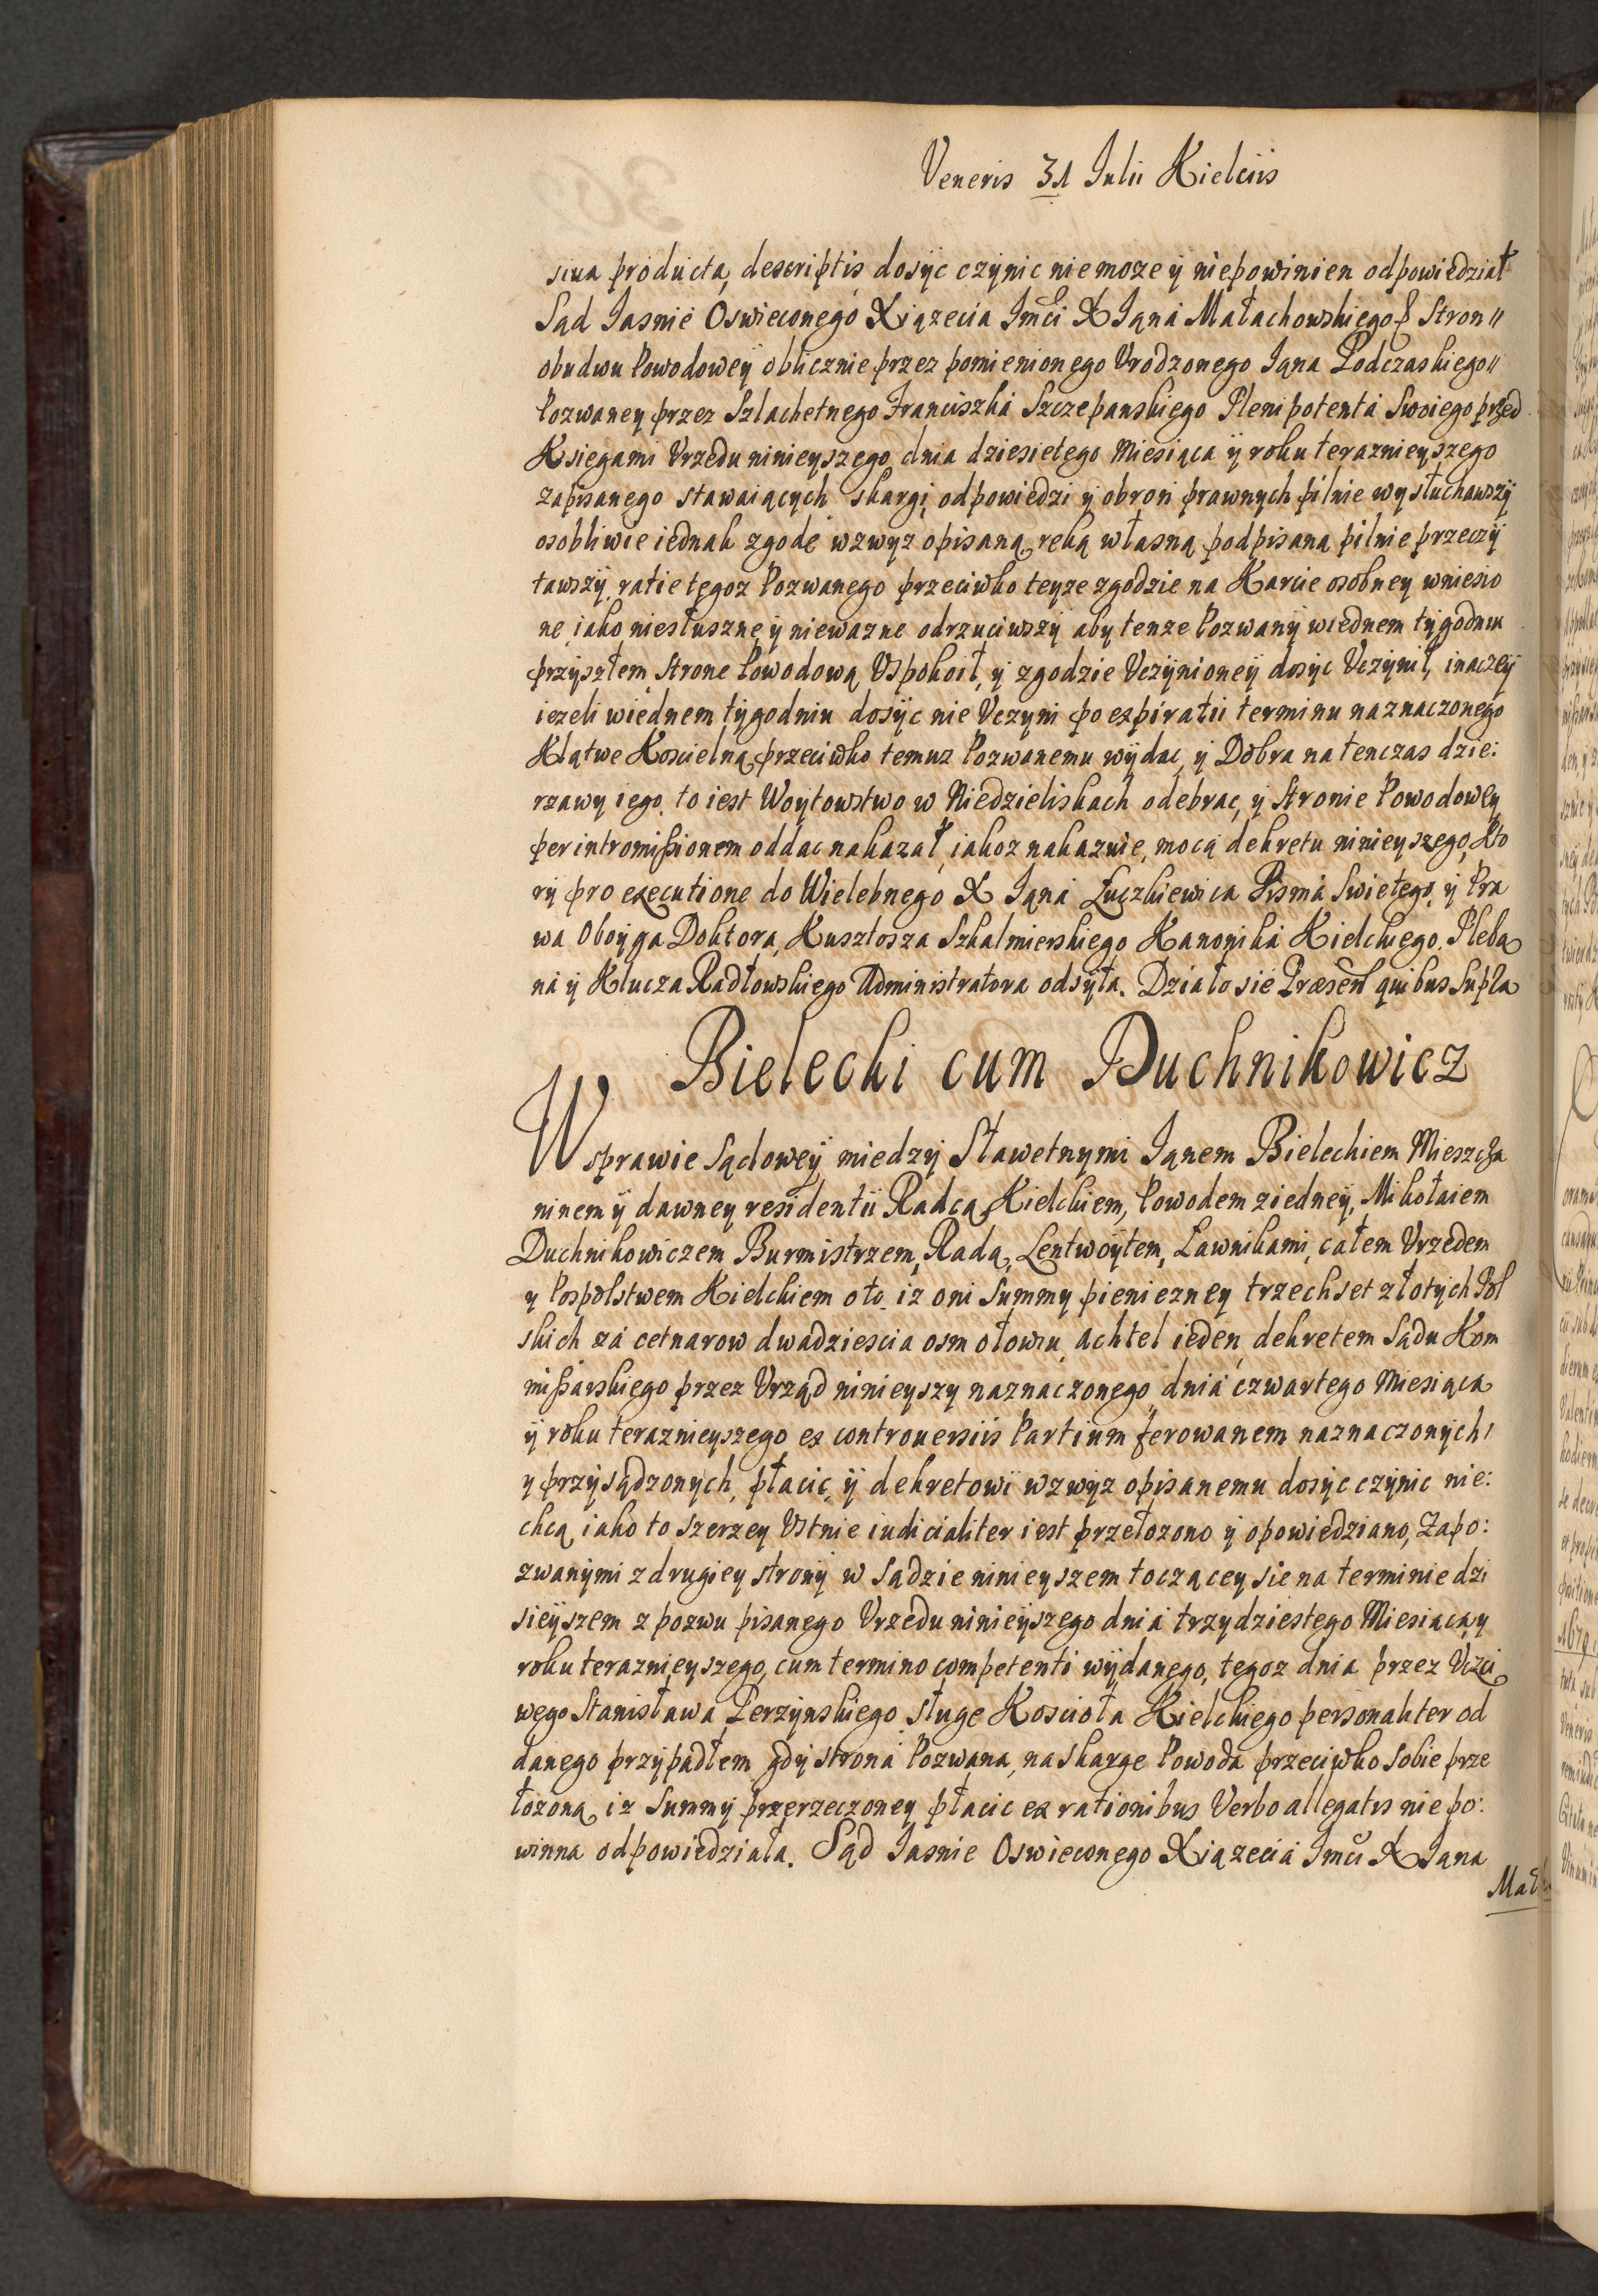 Veneris 31 Iulii Kielciis
siua producta, descriptis, dosÿc czÿnic niemoze ÿ niepowinien odpowiedział
Sąd Iasnie Oswieconego Xiązecia Imci X Iana Małachowskiego Stron
obudwu Powodoweÿ oblicznie przez pomienionego Vrodzonego Iana Podczaskiego
Pozwaney przez Szlachetnego Franciszka Szczepanskiego Plenipotenta Swoiego przed
Ksiegami Vrzedu ninieyszego dnia dziesietego Miesiąca ÿ roku teraznieyszego
zapisanego stawaiących skargi, odpowiedzi ÿ obron prawnych pilnie wysłuchawszÿ
osobliwie iednak zgode wzwyz opisaną, reką własną podpisaną pilnie przeczÿ
tawszÿ, ratie tegoz Pozwanego przeciwko teyze zgodzie na Karcie osobney wniesio
ne, iako niesłuszne ÿ niewazne odrzuciwszÿ aby tenze Pozwanÿ wiednem tÿgodniu
przÿszłem, Strone Powodową Vspokoił, ÿ zgodzie Vczÿnioneÿ dosÿc Vczÿnił, inaczeÿ
iezeli wiednem tÿgodniu dosÿc nie Vczyni po expiratii terminu naznaczonego
Klątwe Koscielną przeciwko temuz Pozwanemu wÿdac, ÿ Dobra natenczas dzie:
rzawy iego, to iest Woytowstwo w Niedzieliskach odebrac, ÿ Stronie Powodowey
per intromißionem oddac nakazał, iakoz nakazuie, mocą dekretu ninieyszego, Kto
rÿ pro executione do Wielebnego X Iana Łuczkiewica Pisma Swietego, ÿ Pra
wa Oboÿga Doktora, Kusztosza Szkalmierskiego, Kanonika Kielckiego, Pleba
na ÿ Klucza Radłowskiego Administratora odsÿła. Działo sie Præsen quibus Supra
Bielecki cum Duchnikowicz
W sprawie sądoweÿ miedzÿ Sławetnymi Ianem Bieleckiem Mieszcza
ninem ÿ dawney residentii Radcą Kielckiem, Powodem ziedneÿ, Mikołaiem
Duchnikowiczem Burmistrzem, Radą, Lentwoÿtem, Ławnikami, całem Vrzedem
y Pospolstwem Kielckiem oto, iz oni Summy pieniezney trzechset złotÿch Pol
skich za cetnarow dwadziescia osm ołowiu, achtel ieden, dekretem Sądu Kom
mißarskiego przez Vrząd ninieyszy naznaczonego dnia czwartego Miesiąca
ÿ roku teraznieyszego ex controuersiis Partium ferowanem naznaczonÿch
y przÿsądzonych, płacic, ÿ dekretowi wzwÿz opisanemu dosÿc czÿnic nie:
chcą, iako to szerzey Vstnie iudicialiter iest przełozono ÿ opowiedziano, Zapo:
zwanÿmi z drugiey stronÿ w sądzie ninieyszem toczącey sie na terminie dzi
sieÿszem z pozwu pisanego Vrzedu ninieÿszego dnia trzydziestego Miesiąca ÿ
roku teraznieyszego, cum termino competenti wÿdanego, tegoz dnia przez Vczci
wego Stanisława Perzÿnskiego sługe Koscioła Kielckiego personaliter od
danego przÿpadłem, gdÿ strona Pozwana, na skarge Powoda przeciwko sobie prze
łozoną, iz Summÿ przerzeczoney płacic ex rationibus Verbo allegatis nie po:
winna odpowiedziała. Sąd Iasnie Oswieconego Xiązecia Imci X Iana